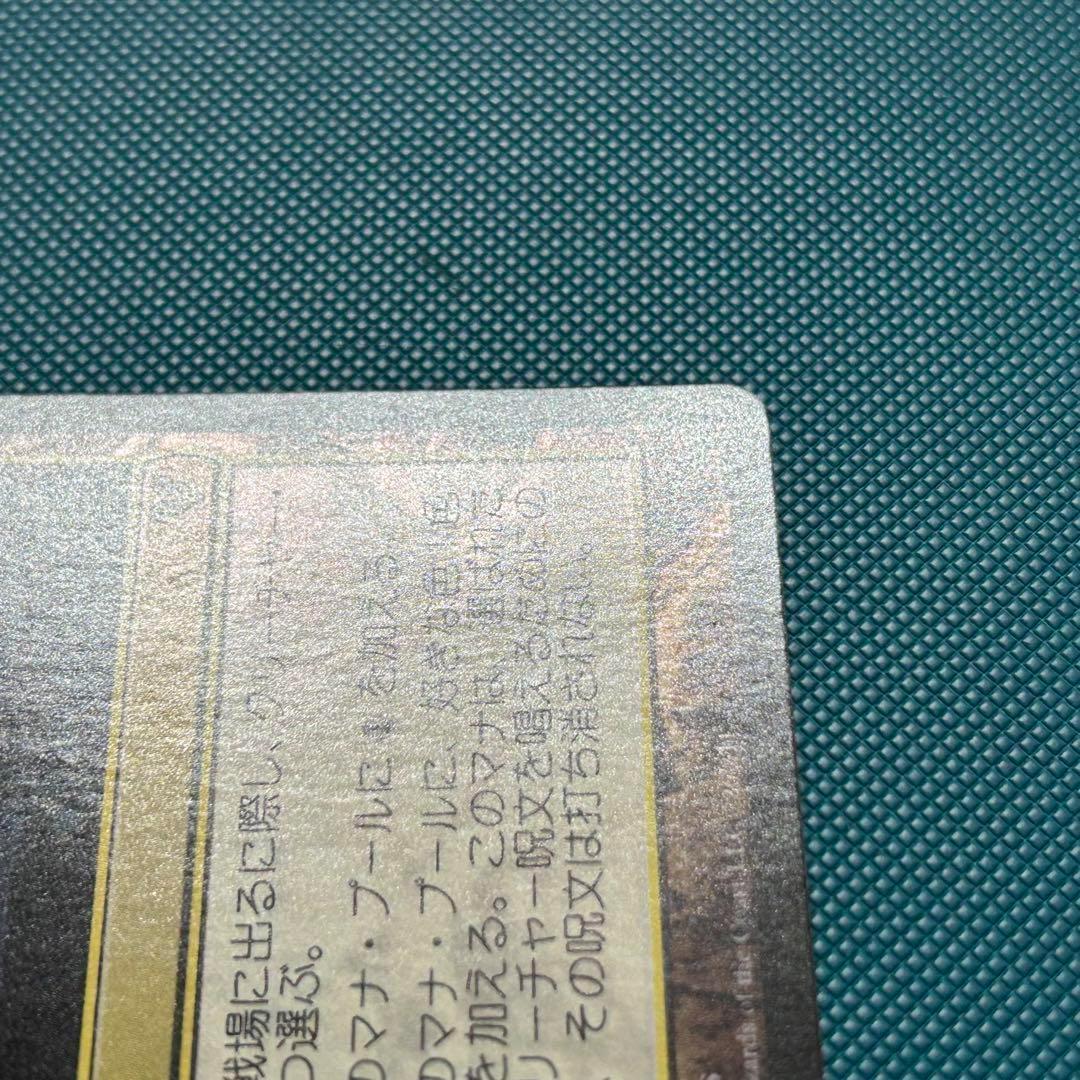 戦場に出るに際し、クリーチャー・
つ選ぶ。
のマナ・プールに を加える
のマナ・プールに、好きな色1色
を加える。このマナは、選ばれた
リーチャー呪文を唱えるためにの
、その呪文は打ち消されない。
zards of the Coast LLC